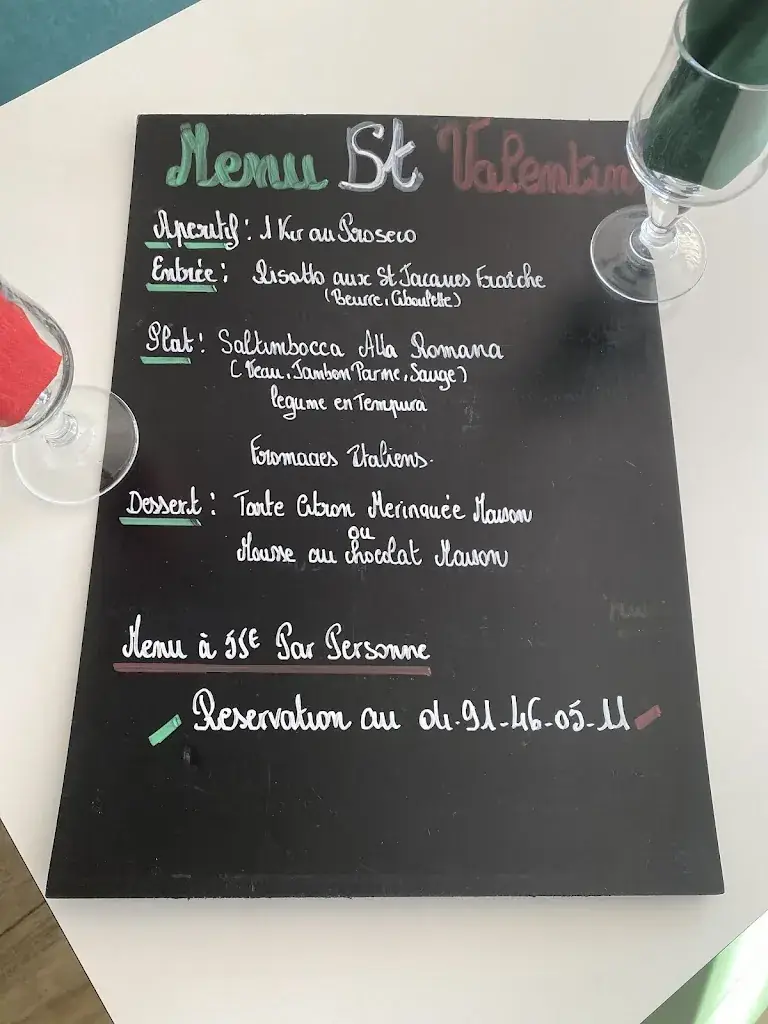 Menu St Valentin
Aperitif : 1 Kir au Proseco
Entrée : Risotto aux St Jacques Fraîche
(Beurre, Ciboulette)
Plat : Saltimbocca Alla Romana
(Veau, Jambon Parme, Sauge)
légume en Tempura
Fromages Italiens.
Dessert : Tarte Citron Meringuée Maison
ou
Mousse au chocolat Maison
Menu à 55€ Par Personne
Reservation au 04-91-46-05-11